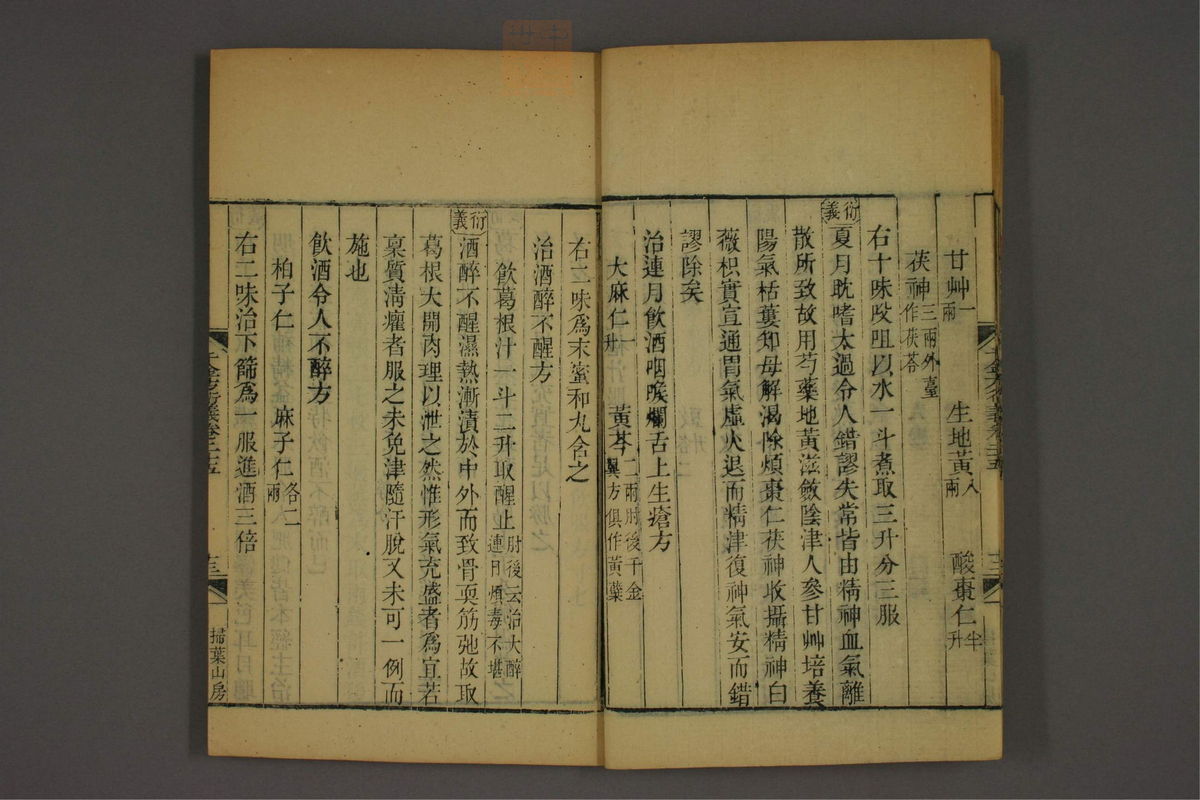 甘艸一兩 生地黃八兩 酸棗仁半升
茯神三兩外臺作茯苓
右十味㕮咀以水一斗煮取三升分三服
衍義 夏月眈嗜太過令人錯謬失常皆由精神血氣離
散所致故用芍藥地黃滋斂陰津人參甘艸培養
陽氣栝蔞知母解渴除煩棗仁茯神收攝精神白
薇枳實宣通胃氣虛火退而精津復神氣安而錯
謬除矣
治連月飲酒咽喉爛舌上生瘡方
大麻仁一升 黃芩二兩肘後千金翼方俱作黃蘗
右二味爲末蜜和丸含之
治酒醉不醒方
飲葛根汁一斗二升取醒止肘後云治大醉連日煩毒不堪
衍義 酒醉不醒濕熱漸漬於中外而致骨耎筋弛故取
葛根大開肉理以泄之然惟形氣充盛者爲宜若
稟質淸癯者服之未免津隨汗脫又未可一例而
施也
飲酒令人不醉方
柏子仁 麻子仁各二兩
右二味治下篩爲一服進酒三倍
十三
掃葉山房